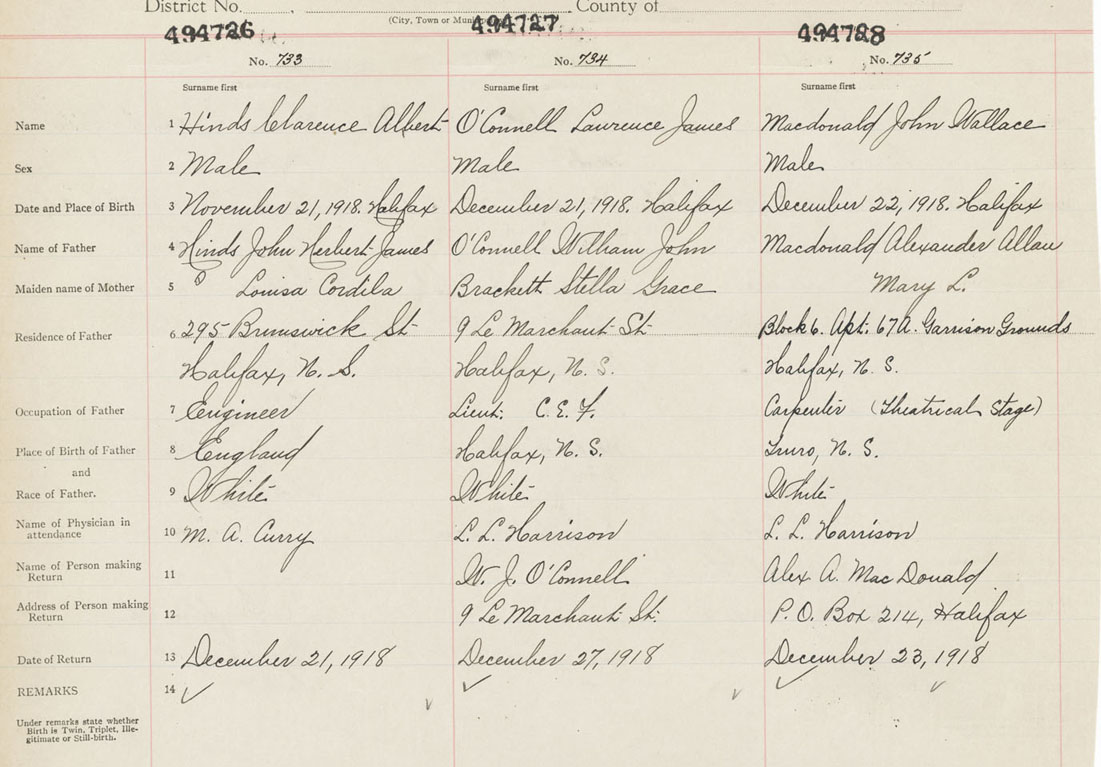 District No. County of
(City, Town or
494726 494727 494728
No. 733 No. 734 No. 735
Surname first Surname first Surname first
Name 1 Hinds Clarence Albert O'Connell Lawrence James Macdonald John Wallace
Sex 2 Male Male Male
Date and Place of Birth 3 November 21, 1918. Halifax December 21, 1918. Halifax December 22, 1918. Halifax
Name of Father 4 Hinds John Herbert James O'Connell William John Macdonald Alexander Allan
Maiden name of Mother 5 Louisa Cordila Brackett Stella Grace Mary L.
Residence of Father 6 295 Brunswick St 9 Le Marchant St Block 6. Apt. 67A. Garrison Grounds
Halifax, N. S. Halifax, N. S. Halifax, N. S.
Occupation of Father 7 Engineer Lieut. C. E. F. Carpenter (Theatrical Stage)
Place of Birth of Father 8 England Halifax, N. S. Truro, N. S.
and
Race of Father. 9 White White White
Name of Physician in attendance 10 M. A. Curry L. L. Harrison L. L. Harrison
Name of Person making Return 11 W. J. O'Connell Alex A. MacDonald
Address of Person making Return 12 9 Le Marchant St. P. O. Box 214, Halifax
Date of Return 13 December 21, 1918 December 27, 1918 December 23, 1918
REMARKS 14
Under remarks state whether
Birth is Twin, Triplet, Ille-
gitimate or Still-birth.